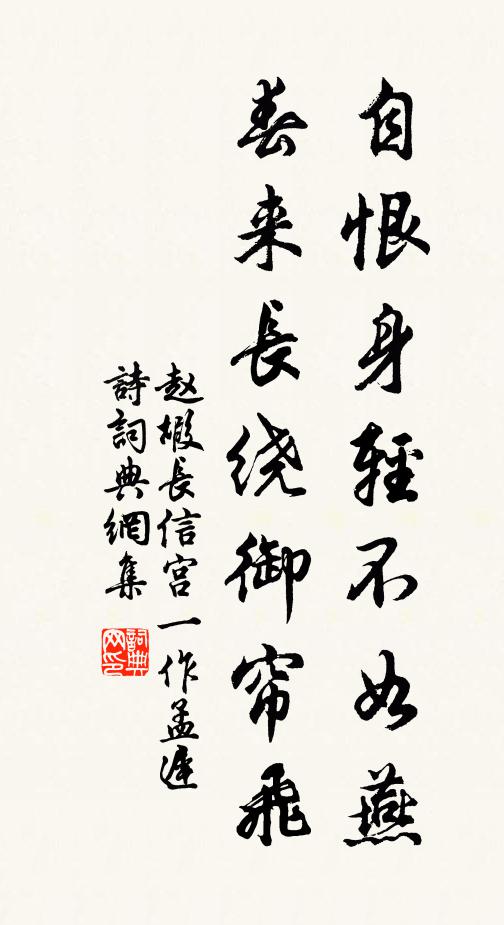 自恨身輕不如燕
春来長绕御帘飛
赵嘏長信宫一作孟遲
詩詞典網集
詞典网印